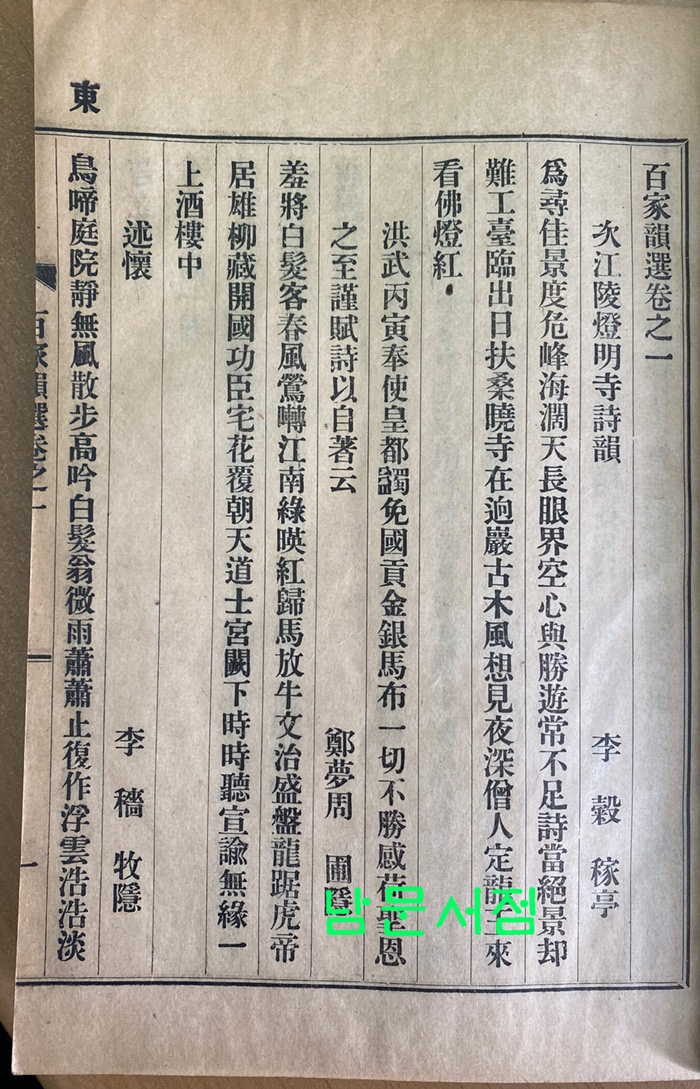 東
百家韻選卷之一
次江陵燈明寺詩韻 李 穀 稼亭
爲尋佳景度危峰海濶天長眼界空心與勝遊常不足詩當絕景却
難工臺臨出日扶桑曉寺在逈巖古木風想見夜深僧人定龍王來
看佛燈紅
洪武丙寅奉使皇都蠲免國貢金銀馬布一切不勝感荷聖恩
之至謹賦詩以自著云 鄭夢周 圃隱
羞將白髮客春風鶯囀江南綠暎紅歸馬放牛文治盛盤龍踞虎帝
居雄柳藏開國功臣宅花覆朝天道士宮闕下時時聽宣諭無緣一
上酒樓中
述懷 李 穡 牧隱
鳥啼庭院靜無風散步高吟白髮翁微雨蕭蕭止復作浮雲浩浩淡
百家韻選卷之一
一
남문서점